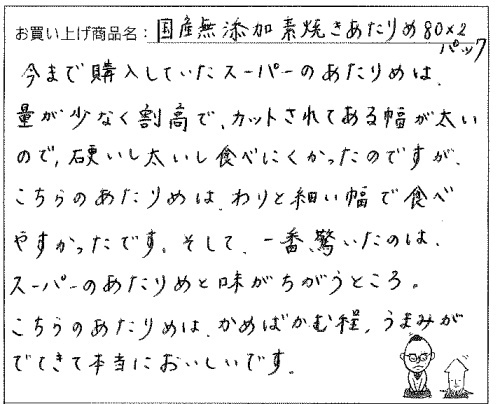 お買い上げ商品名：国産無添加素焼きあたりめ80×2
パック
今まで購入していたスーパーのあたりめは、
量が少なく割高で、カットされてある幅が太い
ので、硬いし太いし食べにくかったのですが、
こちらのあたりめは、わりと細い幅で食べ
やすかったです。そして、一番、驚いたのは、
スーパーのあたりめと味がちがうところ。
こちらのあたりめは、かめばかむ程、うまみが
でてきて本当においしいです。